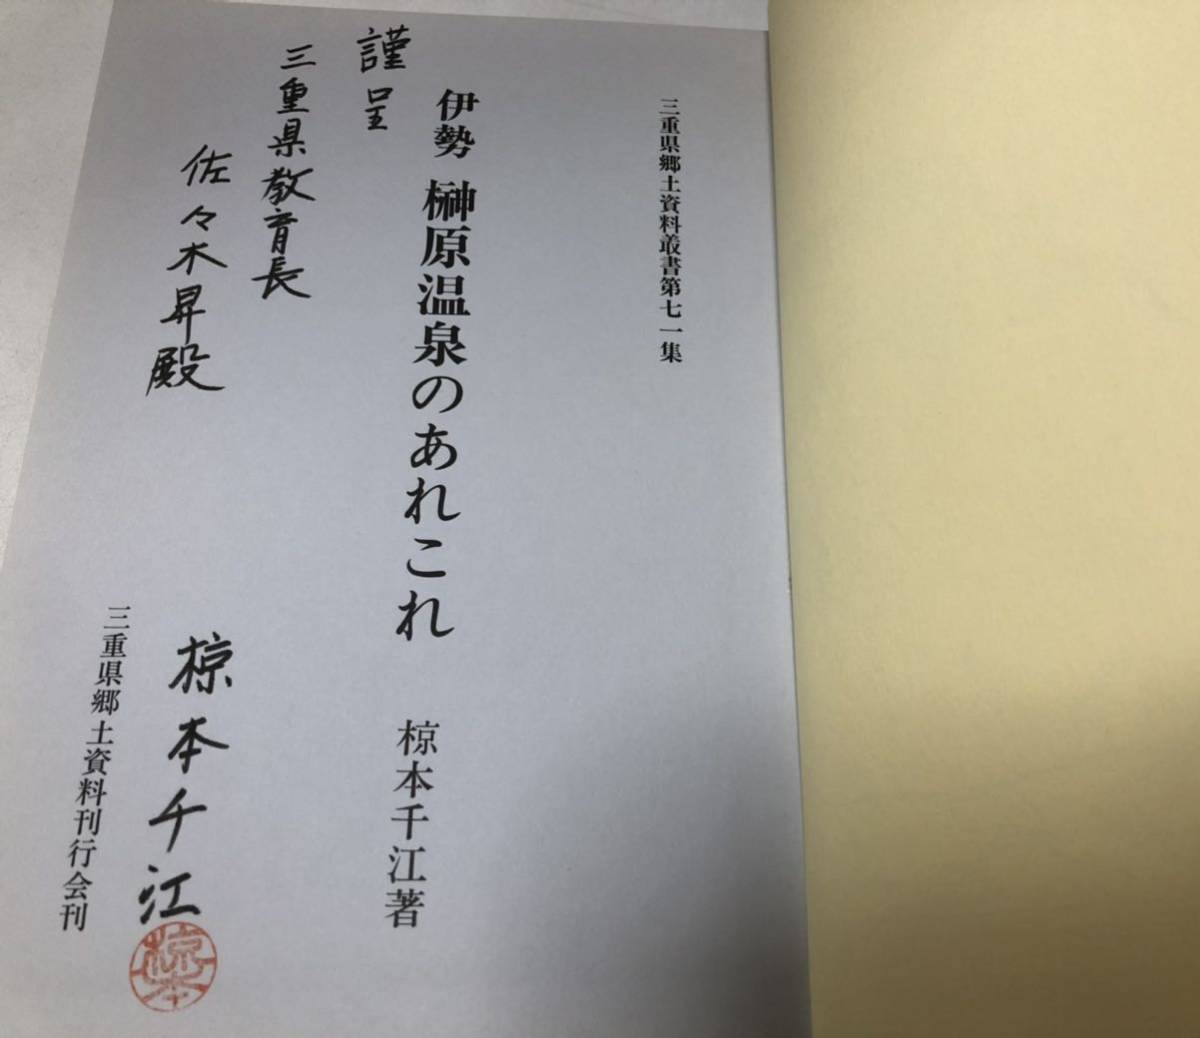 三重県郷土資料叢書第七一集
伊勢 榊原温泉のあれこれ
椋本千江著
謹呈
三重県教育長
佐々木昇殿
椋本千江
椋本
三重県郷土資料刊行会刊